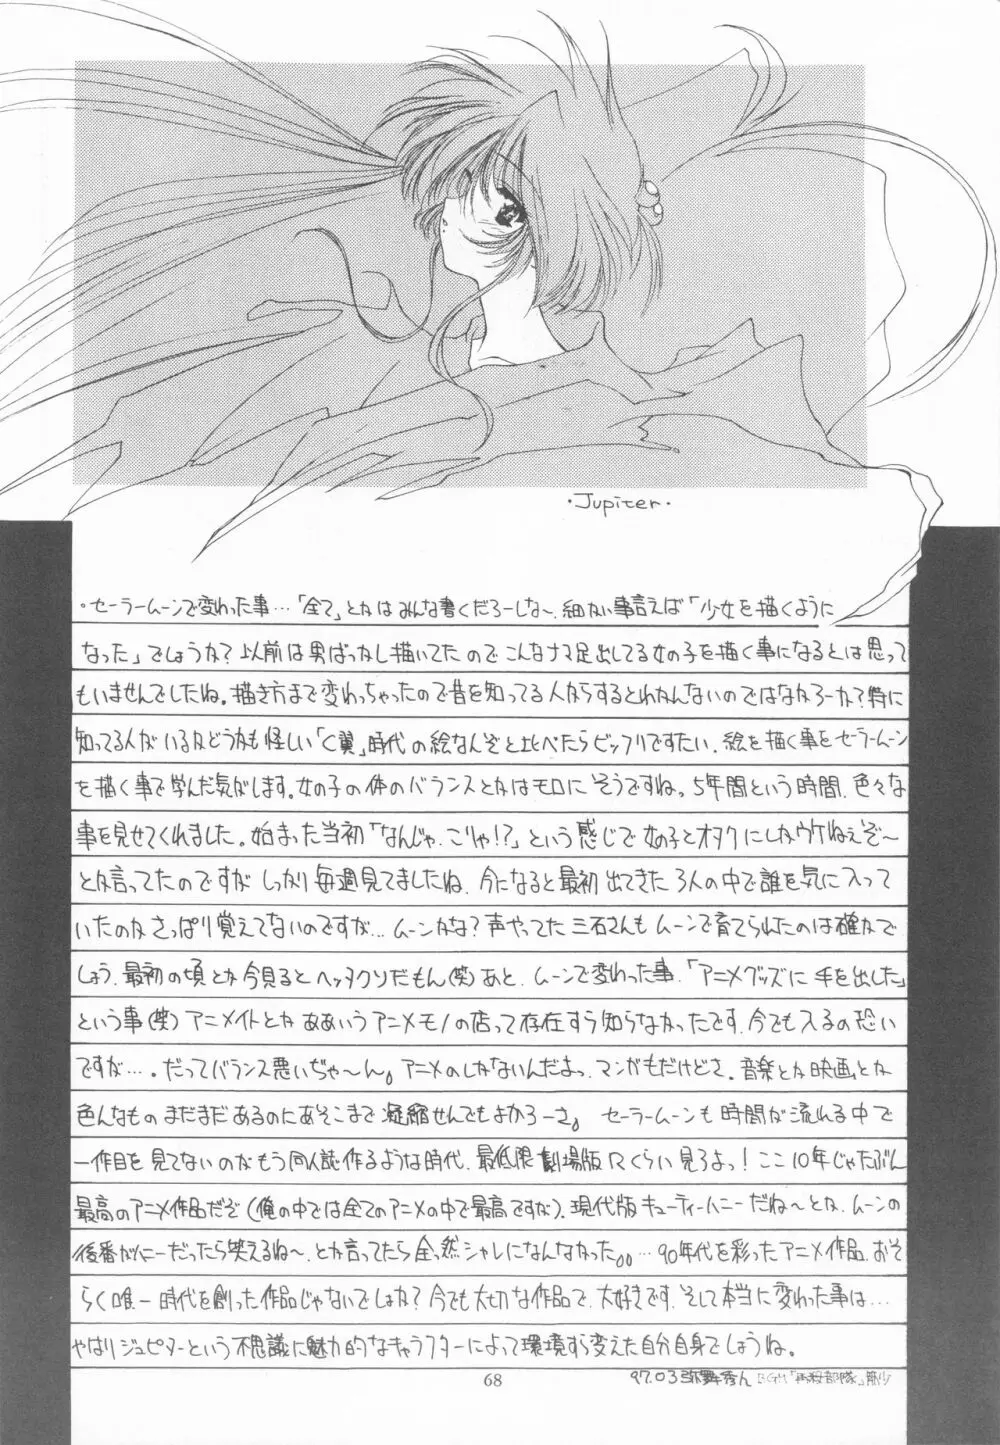 ・Jupiter・
・セーラームーンで変わった事…「全て」とかはみんな書くだろーしな〜、細かい事言えば「少女を描くように
なった」でしょうか?以前は男ばっかし描いてたのでこんなナマ足出してる女の子を描く事になるとは思って
もいませんでしたね。描き方まで変わっちゃったので昔を知ってる人からするとわかんないのではなかろーか?特に
知ってる人がいるかどうかも怪しい「C翼」時代の絵なんぞと比べたらビックリですたい、絵を描く事をセーラームーン
を描く事で学んだ気がします。女の子の体のバランスとかはモロにそうですね。5年間という時間、色々な
事を見せてくれました。始まった当初「なんじゃ、こりゃ!?」という感じで女の子とオタクにしかウケねぇぞ〜
とか言ってたのですがしっかり毎週見てましたね、今になると最初出てきた3人の中で誰を気に入って
いたのかさっぱり覚えてないのですが…ムーンかな?声やってた三石さんもムーンで育てられたのは確かで
しょう、最初の頃とか今見るとヘッタクソだもん(笑)あと、ムーンで変わった事、「アニメグッズに手を出した」
という事(笑)アニメイトとかああいうアニメモノの店って存在すら知らなかったです、今でも入るの恐い
ですが…。だってバランス悪いぢゃ〜ん。アニメのしかないんだよっ、マンガもだけどさ。音楽とか映画とか
色んなものまだまだあるのにあそこまで凝縮せんでもよかろーさ。 セーラームーンも時間が流れる中で
一作目を見てないのがもう同人誌作るような時代、最低限劇場版Rくらい見ろよっ!ここ10年じゃたぶん
最高のアニメ作品だぞ(俺の中では全てのアニメの中で最高ですな)、現代版キューティーハニーだね〜とか、ムーンの
後番がハニーだったら笑えるね〜、とか言ってたら全っ然シャレになんなかった。。…90年代を彩ったアニメ作品、おそ
らく唯一時代を創った作品じゃないでしょか?今でも大切な作品で、大好きです、そして本当に変わった事は…
やはりジュピターという不思議に魅力的なキャラクターによって環境すら変えた自分自身でしょうね。
68
97.03 BGM